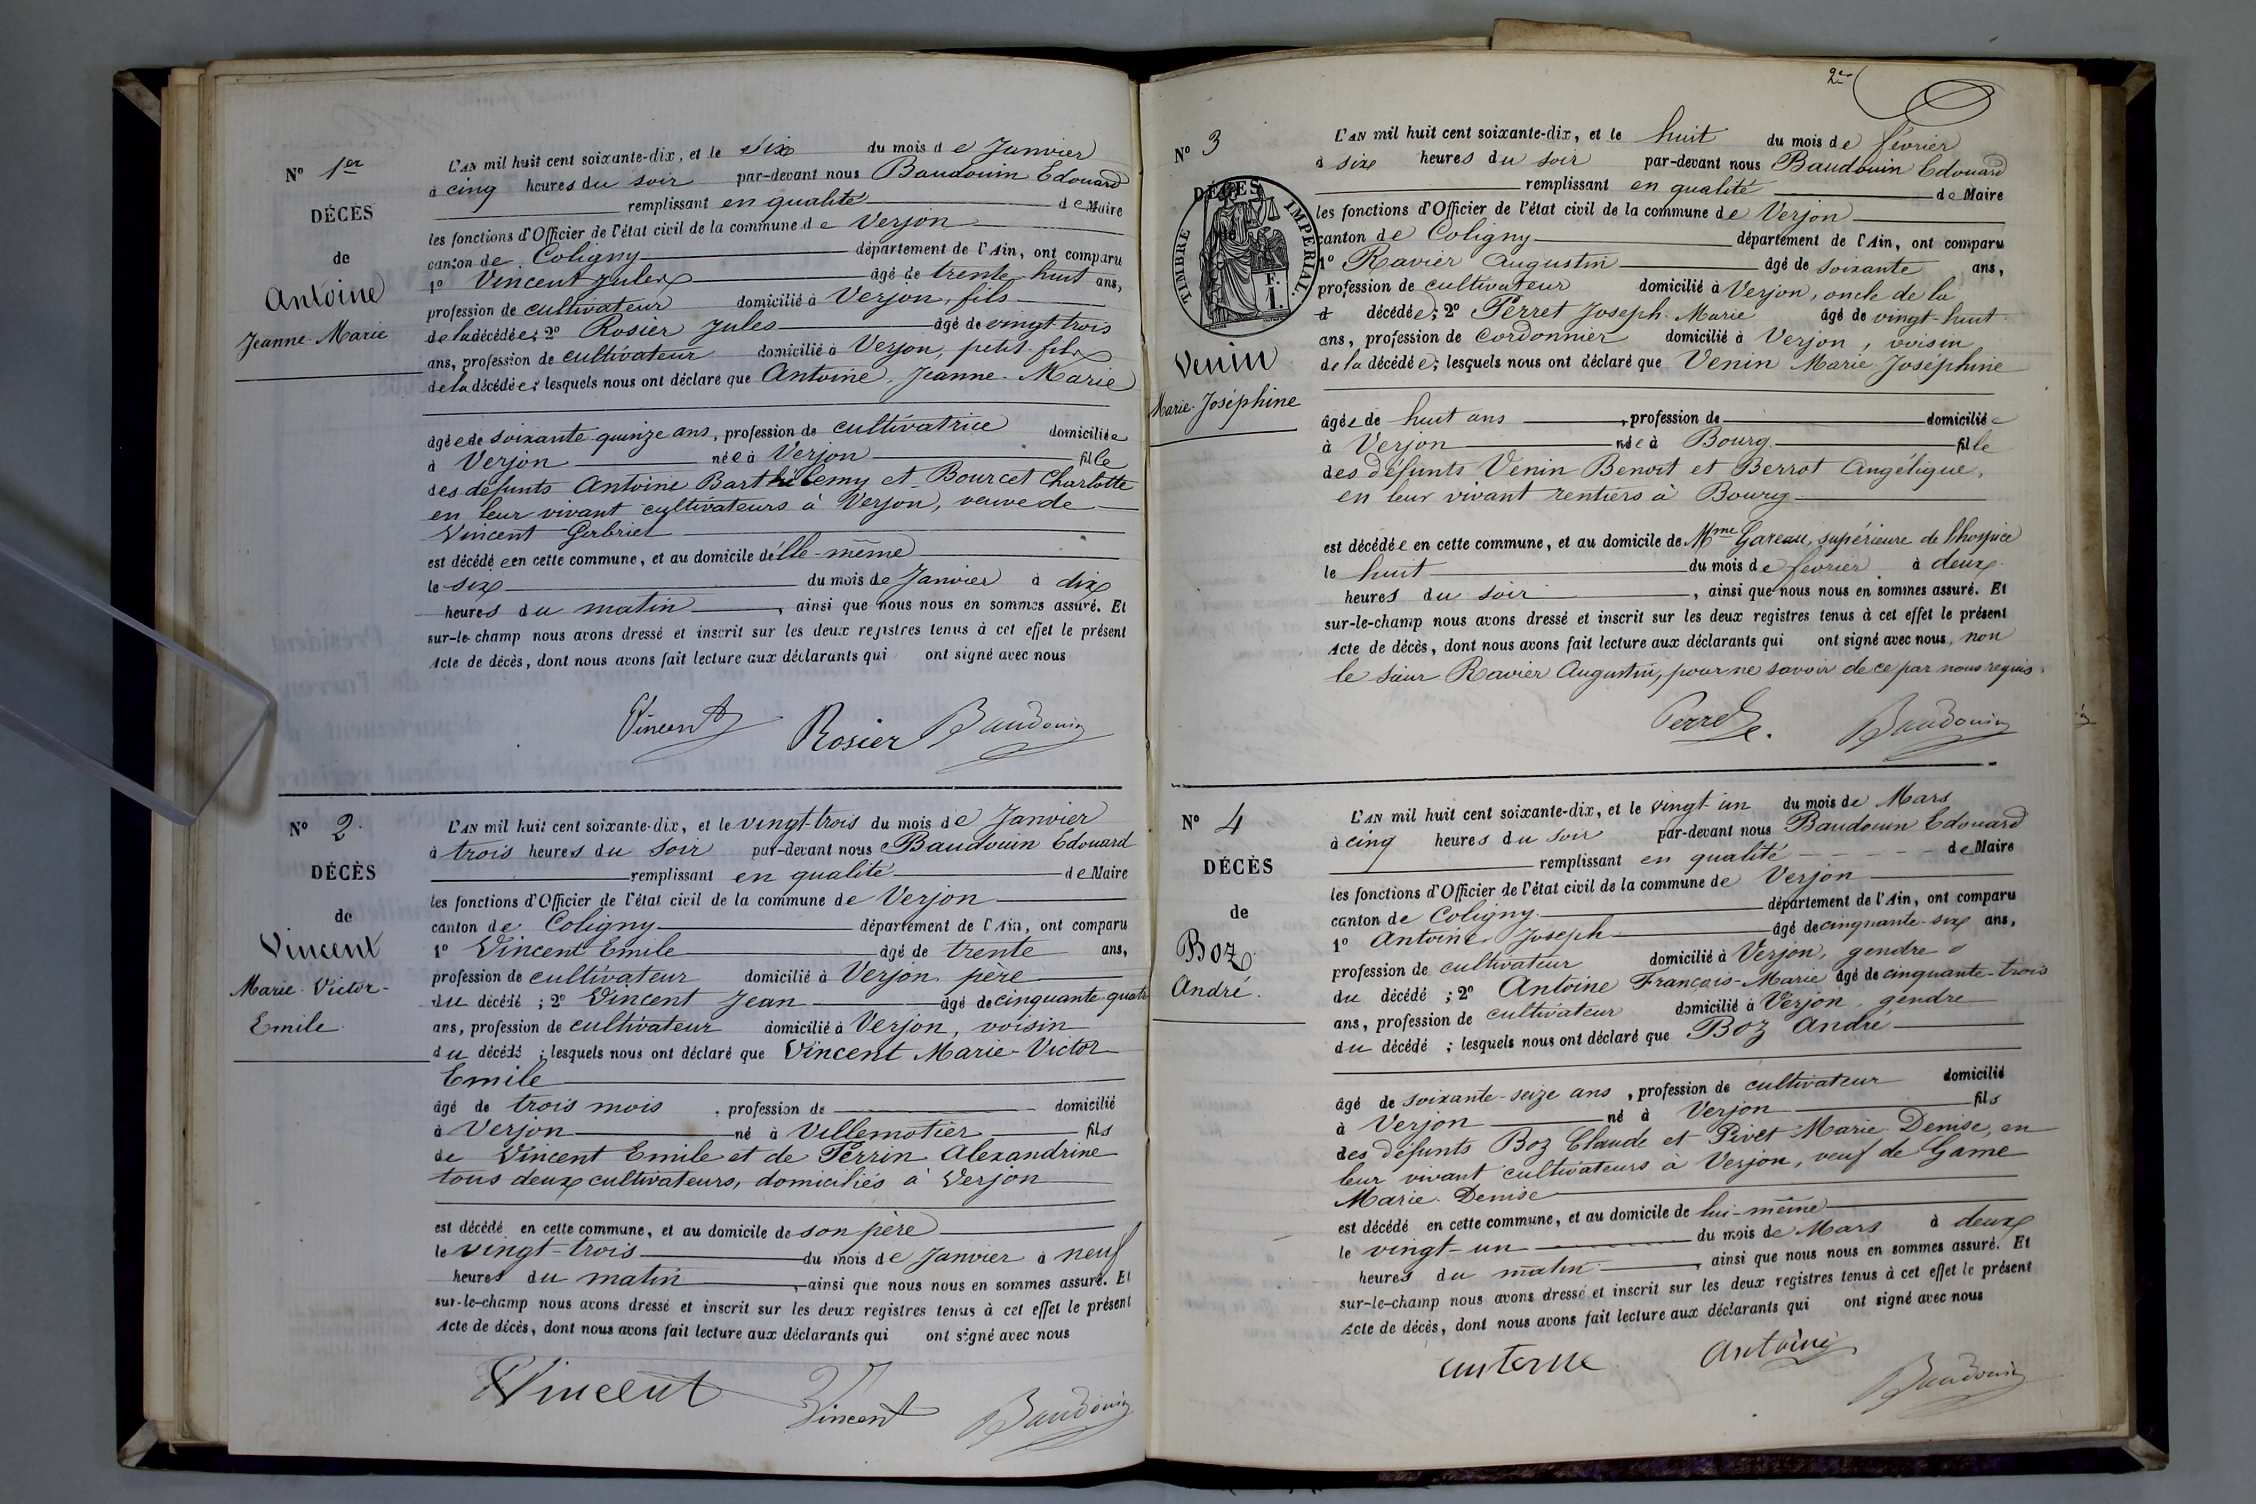 N° 1er
DÉCÈS
de
Antoine
Jeanne-Marie
L'AN mil huit cent soixante-dix, et le six du mois de Janvier
à cinq heures du soir par-devant nous Baudouin Edouard
remplissant en qualité de Maire
les fonctions d'Officier de l'état civil de la commune de Verjon
canton de Coligny département de l'Ain, ont comparu
1° Vincent Jules âgé de trente-huit ans,
profession de cultivateur domicilié à Verjon, fils
de la décédée; 2° Rosier Jules âgé de vingt-trois
ans, profession de cultivateur domicilié à Verjon, petit-fils
de la décédée; lesquels nous ont déclaré que Antoine Jeanne-Marie
âgée de soixante quinze ans, profession de cultivatrice domiciliée
à Verjon née à Verjon fille
des défunts Antoine Barthélemy et Bourcet Charlotte
en leur vivant cultivateurs à Verjon, veuve de
Vincent Gabriel
est décédée en cette commune, et au domicile d'elle-même
le six du mois de Janvier à dix
heures du matin, ainsi que nous nous en sommes assuré. Et
sur-le-champ nous avons dressé et inscrit sur les deux registres tenus à cet effet le présent
Acte de décès, dont nous avons fait lecture aux déclarants qui ont signé avec nous
Vincent Rosier Baudouin
N° 2
DÉCÈS
de
Vincent
Marie-Victor-
Emile
L'AN mil huit cent soixante-dix, et le vingt-trois du mois de Janvier
à trois heures du soir par-devant nous Baudouin Edouard
remplissant en qualité de Maire
les fonctions d'Officier de l'état civil de la commune de Verjon
canton de Coligny département de l'Ain, ont comparu
1° Vincent Emile âgé de trente ans,
profession de cultivateur domicilié à Verjon père
du décédé; 2° Vincent Jean âgé de cinquante-quatre
ans, profession de cultivateur domicilié à Verjon, voisin
du décédé; lesquels nous ont déclaré que Vincent Marie-Victor
Emile
âgé de trois mois, profession de domicilié
à Verjon né à Villemotier fils
de Vincent Emile et de Perrin Alexandrine
tous deux cultivateurs, domiciliés à Verjon
est décédé en cette commune, et au domicile de son père
le vingt-trois du mois de Janvier à neuf
heures du matin, ainsi que nous nous en sommes assuré. Et
sur-le-champ nous avons dressé et inscrit sur les deux registres tenus à cet effet le présent
Acte de décès, dont nous avons fait lecture aux déclarants qui ont signé avec nous
Vincent Vincent Baudouin
N° 3
DÉCÈS
TIMBRE IMPÉRIAL.
F.
1.
Venin
Marie-Joséphine
L'AN mil huit cent soixante-dix, et le huit du mois de février
à six heures du soir par-devant nous Baudouin Edouard
remplissant en qualité de Maire
les fonctions d'Officier de l'état civil de la commune de Verjon
canton de Coligny département de l'Ain, ont comparu
1° Ravier Augustin âgé de soixante ans,
profession de cultivateur domicilié à Verjon, oncle de la
d décédée; 2° Perret Joseph-Marie âgé de vingt-huit
ans, profession de cordonnier domicilié à Verjon, voisin
de la décédée; lesquels nous ont déclaré que Venin Marie Joséphine
âgée de huit ans, profession de domiciliée
à Verjon née à Bourg fille
des défunts Venin Benoit et Berrot Angélique,
en leur vivant rentiers à Bourg
est décédée en cette commune, et au domicile de Mme Gareau, supérieure de l'hospice
le huit du mois de février à deux
heures du soir, ainsi que nous nous en sommes assuré. Et
sur-le-champ nous avons dressé et inscrit sur les deux registres tenus à cet effet le présent
Acte de décès, dont nous avons fait lecture aux déclarants qui ont signé avec nous, non
le sieur Ravier Augustin, pour ne savoir de ce par nous requis.
Perret Baudouin
N° 4
DÉCÈS
de
Boz
André
L'AN mil huit cent soixante-dix, et le vingt-un du mois de Mars
à cinq heures du soir par-devant nous Baudouin Edouard
remplissant en qualité de Maire
les fonctions d'Officier de l'état civil de la commune de Verjon
canton de Coligny département de l'Ain, ont comparu
1° Antoine Joseph âgé de cinquante-six ans,
profession de cultivateur domicilié à Verjon, gendre
du décédé; 2° Antoine François-Marie âgé de cinquante-trois
ans, profession de cultivateur domicilié à Verjon, gendre
du décédé; lesquels nous ont déclaré que Boz André
âgé de soixante-seize ans, profession de cultivateur domicilié
à Verjon né à Verjon fils
des défunts Boz Claude et Pivet Marie-Denise, en
leur vivant cultivateurs à Verjon, veuf de Game
Marie-Denise
est décédé en cette commune, et au domicile de lui-même
le vingt-un du mois de Mars à deux
heures du matin, ainsi que nous nous en sommes assuré. Et
sur-le-champ nous avons dressé et inscrit sur les deux registres tenus à cet effet le présent
Acte de décès, dont nous avons fait lecture aux déclarants qui ont signé avec nous
Antoine Baudouin